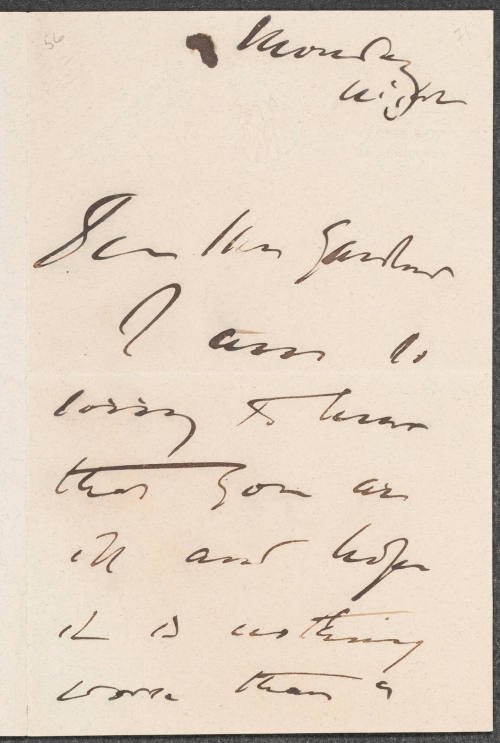 56
71
Monday
night
Dear Mrs Gardner
I am so
sorry to hear
that you are
ill and hope
it is nothing
worse than a